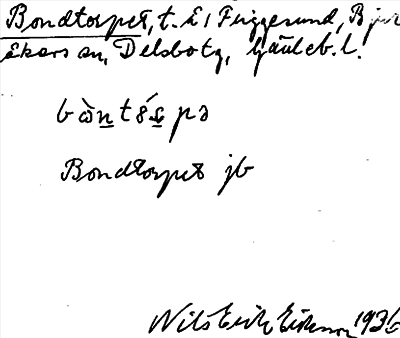 Bondtorpet, t. E, Friggesund, Bjur
åkers sn, Delsbo tg, Gävleb. l.
Bondtorpet jb
Nils Erik Eriksson 1936